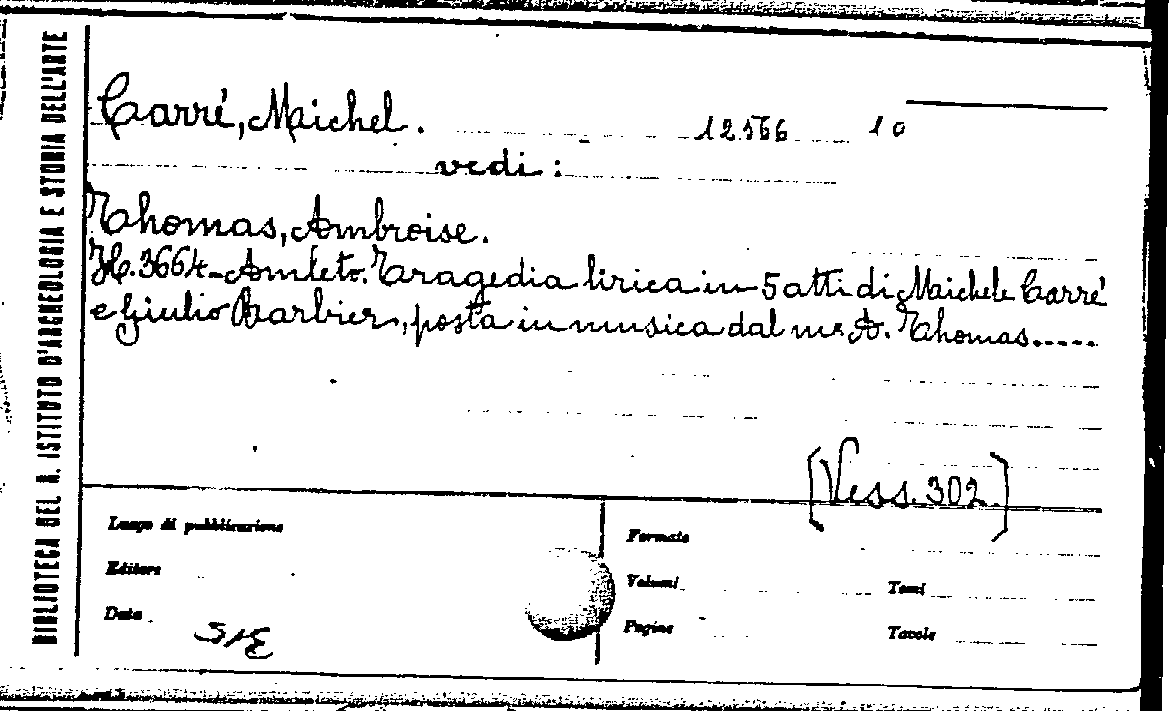 BIBLIOTECA DEL R. ISTITUTO D'ARCHEOLOGIA E STORIA DELL'ARTE
Carré, Michel. 12566 10
vedi:
Thomas, Ambroise.
Amleto. Tragedia lirica in 5 atti di Michele Carré
e Giulio Barbier, posta in musica dal mº A. Thomas.....
[Vess. 302]
Luogo di pubblicazione
Editore
Data
Formato
Volumi Tomi
Pagine Tavole